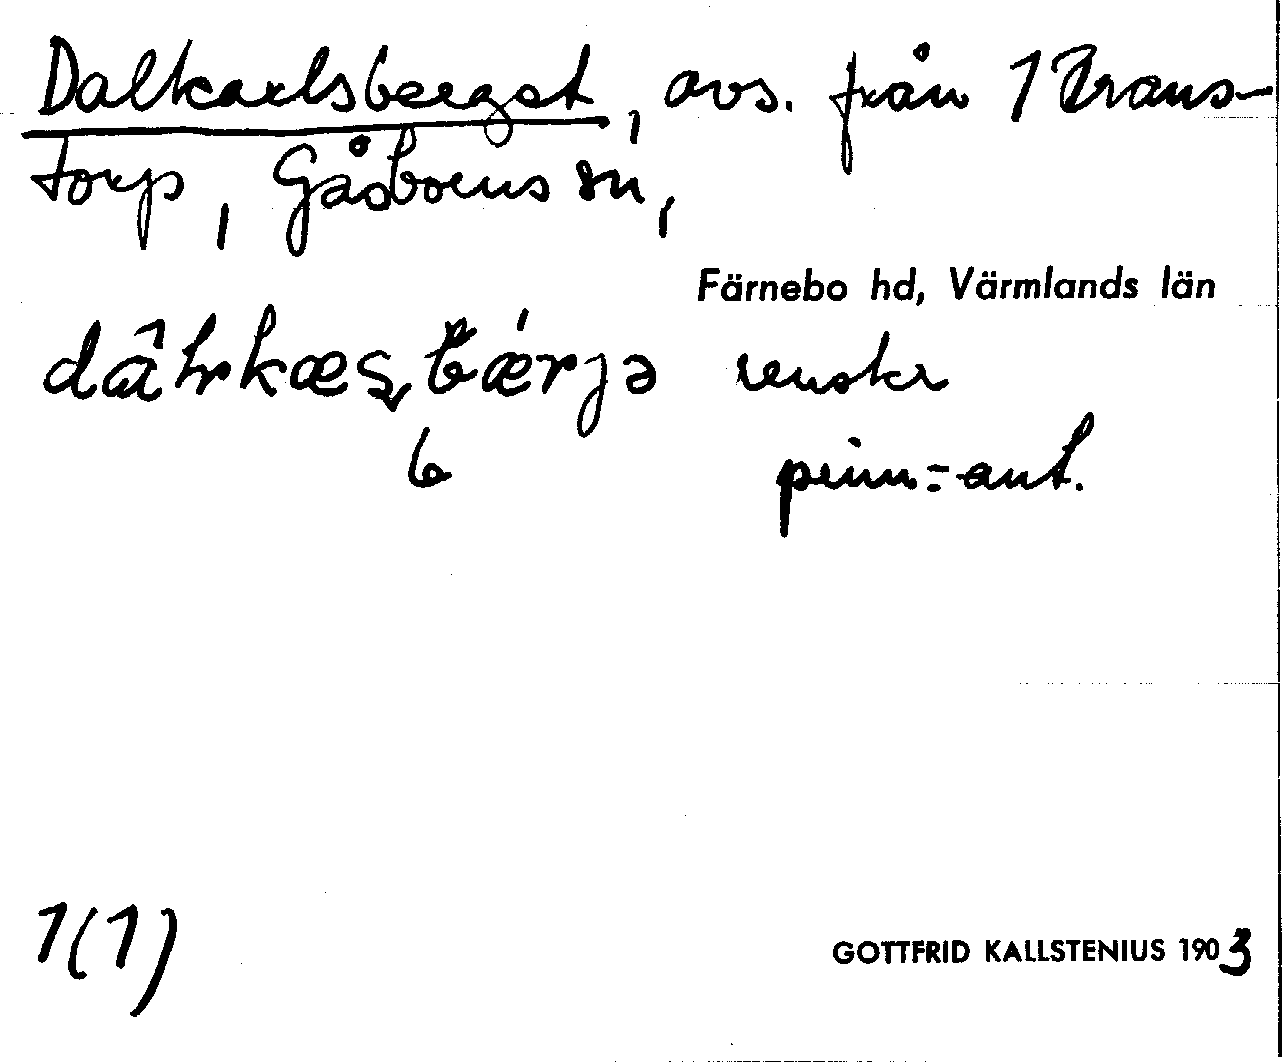 Dalkarlsberget, avs. från 1 Trans-
torp, Gåsborns sn,
Färnebo hd, Värmlands län
renskr
penn-ant.
1(1)
GOTTFRID KALLSTENIUS 1903